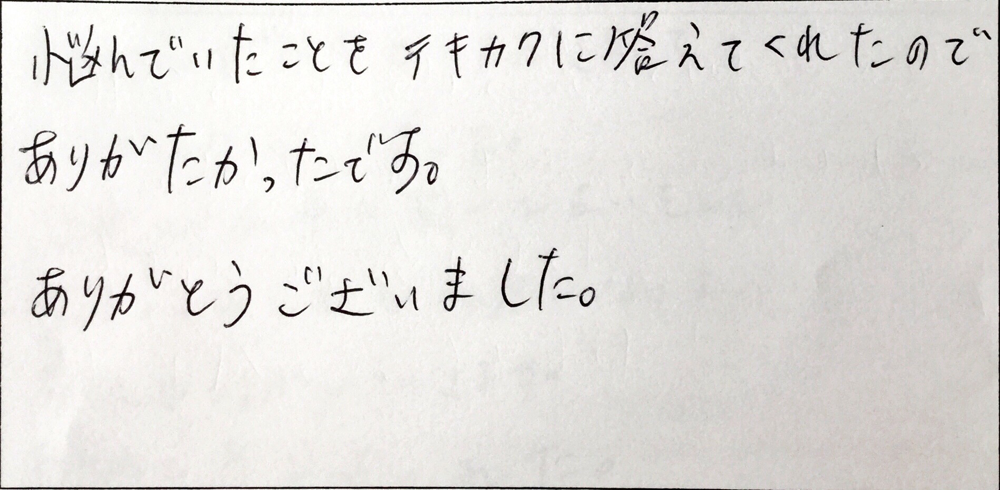 悩んでいたことをテキカクに答えてくれたので
ありがたかったです。
ありがとうございました。